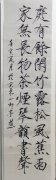 庭有餘閒竹露松風蕉雨
家無長物茶煙琴韻書聲